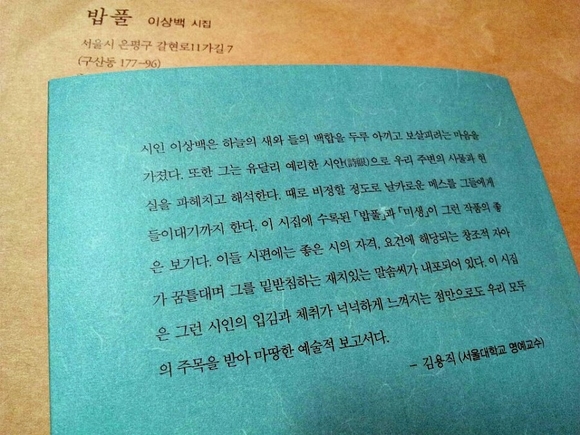 밥풀 이상백 시집
서울시 은평구 갈현로11가길 7
(구산동 177-96)
시인 이상백은 하늘의 새와 들의 백합을 두루 아끼고 보살피려는 마음을
가졌다. 또한 그는 유달리 예리한 시안(詩眼)으로 우리 주변의 사물과 현
실을 파헤치고 해석한다. 때로 비정할 정도로 날카로운 메스를 그들에게
들이대기까지 한다. 이 시집에 수록된 「밥풀」과 「미생」이 그런 작품의 좋
은 보기다. 이들 시편에는 좋은 시의 자격, 요건에 해당되는 창조적 자아
가 꿈틀대며 그를 밑받침하는 재치있는 말솜씨가 내포되어 있다. 이 시집
은 그런 시인의 입김과 체취가 넉넉하게 느껴지는 점만으로도 우리 모두
의 주목을 받아 마땅한 예술적 보고서다.
- 김용직 (서울대학교 명예교수)